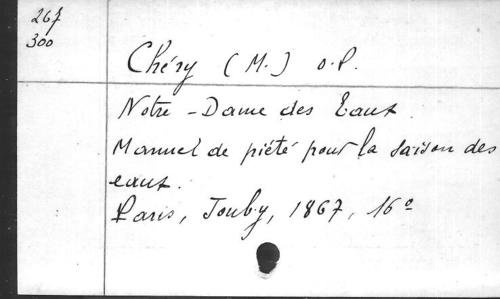 267
300
Chéry (M.) o.P.
Notre-Dame des Eaux.
Manuel de piété pour la saison des
eaux.
Paris, Jouby, 1867, 16°